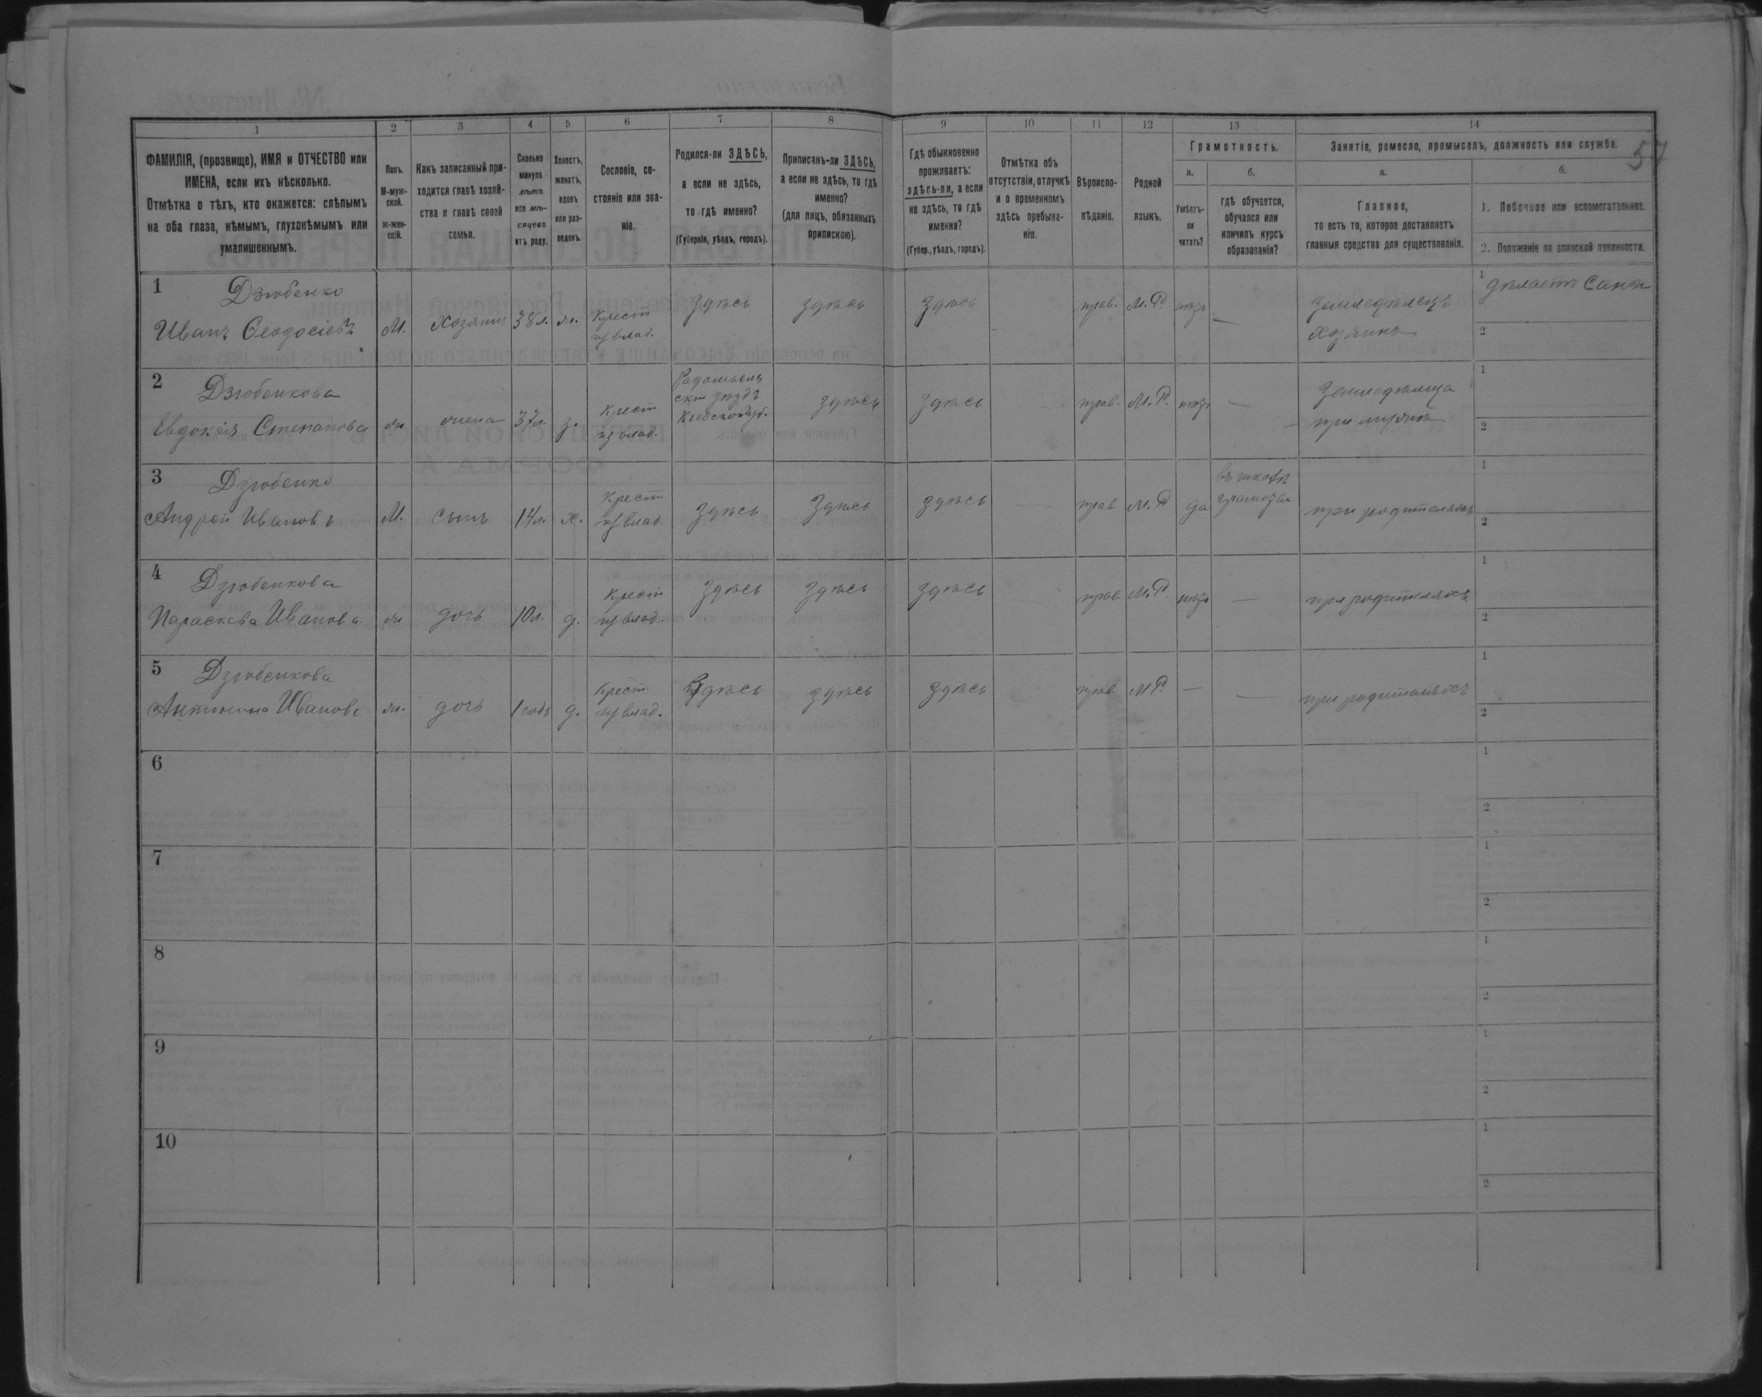 57
1 2 3 4 5 6 7 8 9 10 11 12 13 14
ФАМИЛІЯ, (прозвище), ИМЯ и ОТЧЕСТВО или
ИМЕНА, если ихъ нѣсколько.
Отмѣтка о тѣхъ, кто окажется: слѣпымъ
на оба глаза, нѣмымъ, глухонѣмымъ или
умалишеннымъ.
Полъ.
М-муж-
ской.
ж-жен-
скій.
Какъ записанный при-
ходится главѣ хозяй-
ства и главѣ своей
семьи.
Сколько
минуло
лѣтъ
или мѣ-
сяцевъ
отъ роду.
Холостъ,
женатъ,
вдовъ
или раз-
веденъ.
Сословіе, со-
стояніе или зва-
ніе.
Родился-ли ЗДѢСЬ,
а если не здѣсь,
то гдѣ именно?
(Губернія, уѣздъ, городъ).
Приписанъ-ли ЗДѢСЬ,
а если не здѣсь, то гдѣ
именно?
(для лицъ, обязанныхъ
припискою).
Гдѣ обыкновенно
проживаетъ:
здѣсь-ли, а если
не здѣсь, то гдѣ
именно?
(Губер., уѣздъ, городъ).
Отмѣтка объ
отсутствіи, отлучкѣ
и о временномъ
здѣсь пребыва-
ніи.
Вѣроиспо-
вѣданіе.
Родной
языкъ.
Грамотность.
а.
Умѣетъ-
ли
читать?
б.
гдѣ обучается,
обучался или
кончилъ курсъ
образованія?
Занятіе, ремесло, промыселъ, должность или служба.
а.
Главное,
то есть то, которое доставляетъ
главныя средства для существованія.
б.
1. Побочное или вспомогательное.
2. Положеніе по воинской повинности.
1 Дзюбенко здѣсь здѣсь здѣсь прав. М.Р. землед­ѣлецъ 1 дѣлаетъ Сани
Иванъ Ѳеодосіевъ М. хозяинъ 38л. ж. Крест из влад. — хозяинъ 2
2 Дзюбенкова Радомысль
скій уѣздъ
Кіевской губ. здѣсь здѣсь прав. М.Р. — 1
Евдокія Степанова ж жена 37л. з. Крест из влад. 2
3 Дзюбенко здѣсь здѣсь здѣсь прав М.Р да въ школѣ 1
Андрей Ивановъ М. сынъ 14л. х. Крест из влад. при родителяхъ 2
4 Дзюбенкова здѣсь здѣсь здѣсь прав М.Р — 1
Параскева Иванова ж дочь 10л. д. Крест из влад. при родителяхъ 2
5 Дзюбенкова Здѣсь здѣсь здѣсь прав М.Р. — — 1
Антонина Иванова ж. дочь 1 годъ д. Крест из влад. при родителяхъ 2
6 1
2
7 1
2
8 1
2
9 1
2
10 1
2